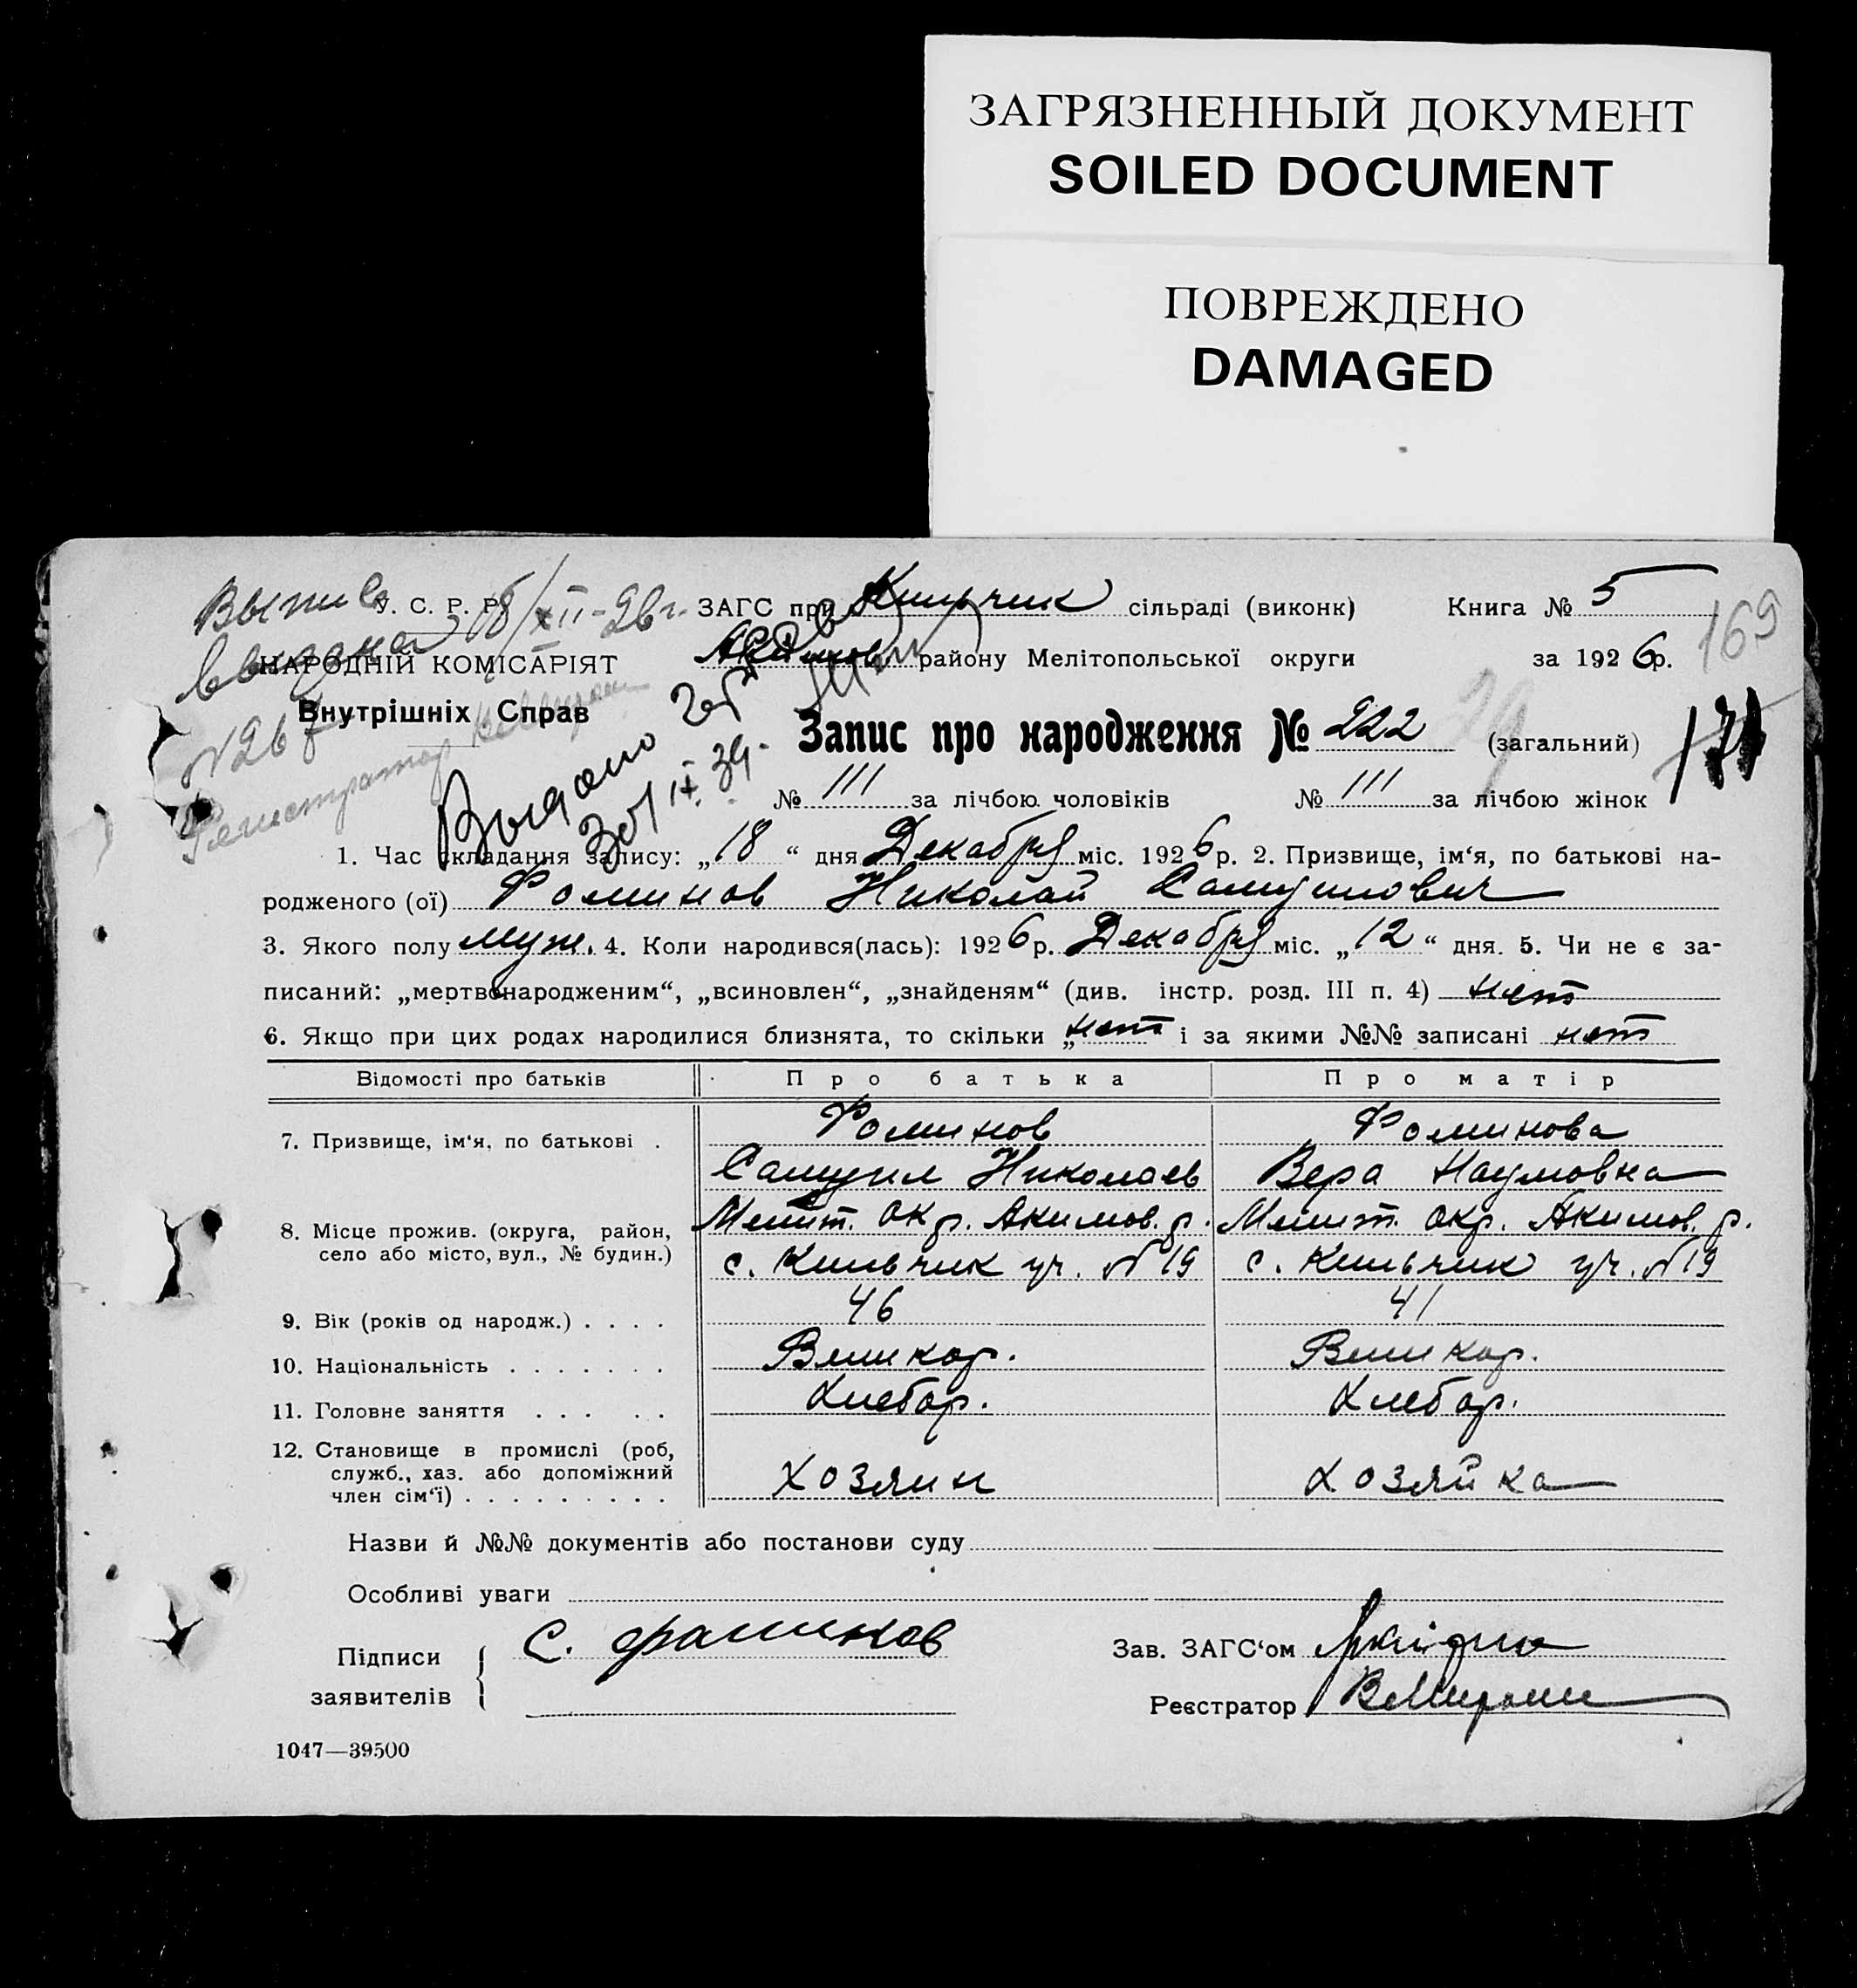 ЗАГРЯЗНЕННЫЙ ДОКУМЕНТ
SOILED DOCUMENT
ПОВРЕЖДЕНО
DAMAGED
У. С. Р. Р. ЗАГС при Кильчик сільраді (виконк) Книга № 5
18/XII-26 г.
169
НАРОДНІЙ КОМІСАРІЯТ Акимов. району Мелітопольської округи за 1926 р.
Внутрішніх Справ
Выдано
30/IX.39.
Запис про народження № 222 (загальний)
№ 111 за лічбою чоловіків № 111 за лічбою жінок
1. Час складання запису: „18“ дня Декабря міс. 1926 р. 2. Призвище, ім‘я, по батькові на-
родженого (ої) Фоминов Николай Самуилович
3. Якого полу муж. 4. Коли народився(лась): 1926 р. Декабря міс. „12“ дня. 5. Чи не є за-
писаний: „мертвонародженим“, „всиновлен“, „знайденям“ (див. інстр. розд. III п. 4) нет
6. Якщо при цих родах народилися близнята, то скільки „нет“ і за якими №№ записані нет
Відомості про батьків Про батька Про матір
7. Призвище, ім‘я, по батькові . Фоминов Фоминова
Самуил Николаев Вера Наумовна
8. Місце прожив. (округа, район, Мелит. окр. Акимов. р. Мелит. окр. Акимов. р.
село або місто, вул., № будин.) с. Кильчик уч. №19 с. Кильчик уч. №19
9. Вік (років од народж.) . . . . 46 41
10. Національність . . . . . . . Великор. Великор.
11. Головне заняття . . . . . Хлебор. Хлебор.
12. Становище в промислі (роб,
служб., хаз. або допоміжний
член сім‘ї) . . . . . . . . . Хозяин Хозяйка
Назви й №№ документів або постанови суду
Особливі уваги
Підписи заявителів С. Фоминов
Зав. ЗАГС‘ом
Реєстратор
1047—39500